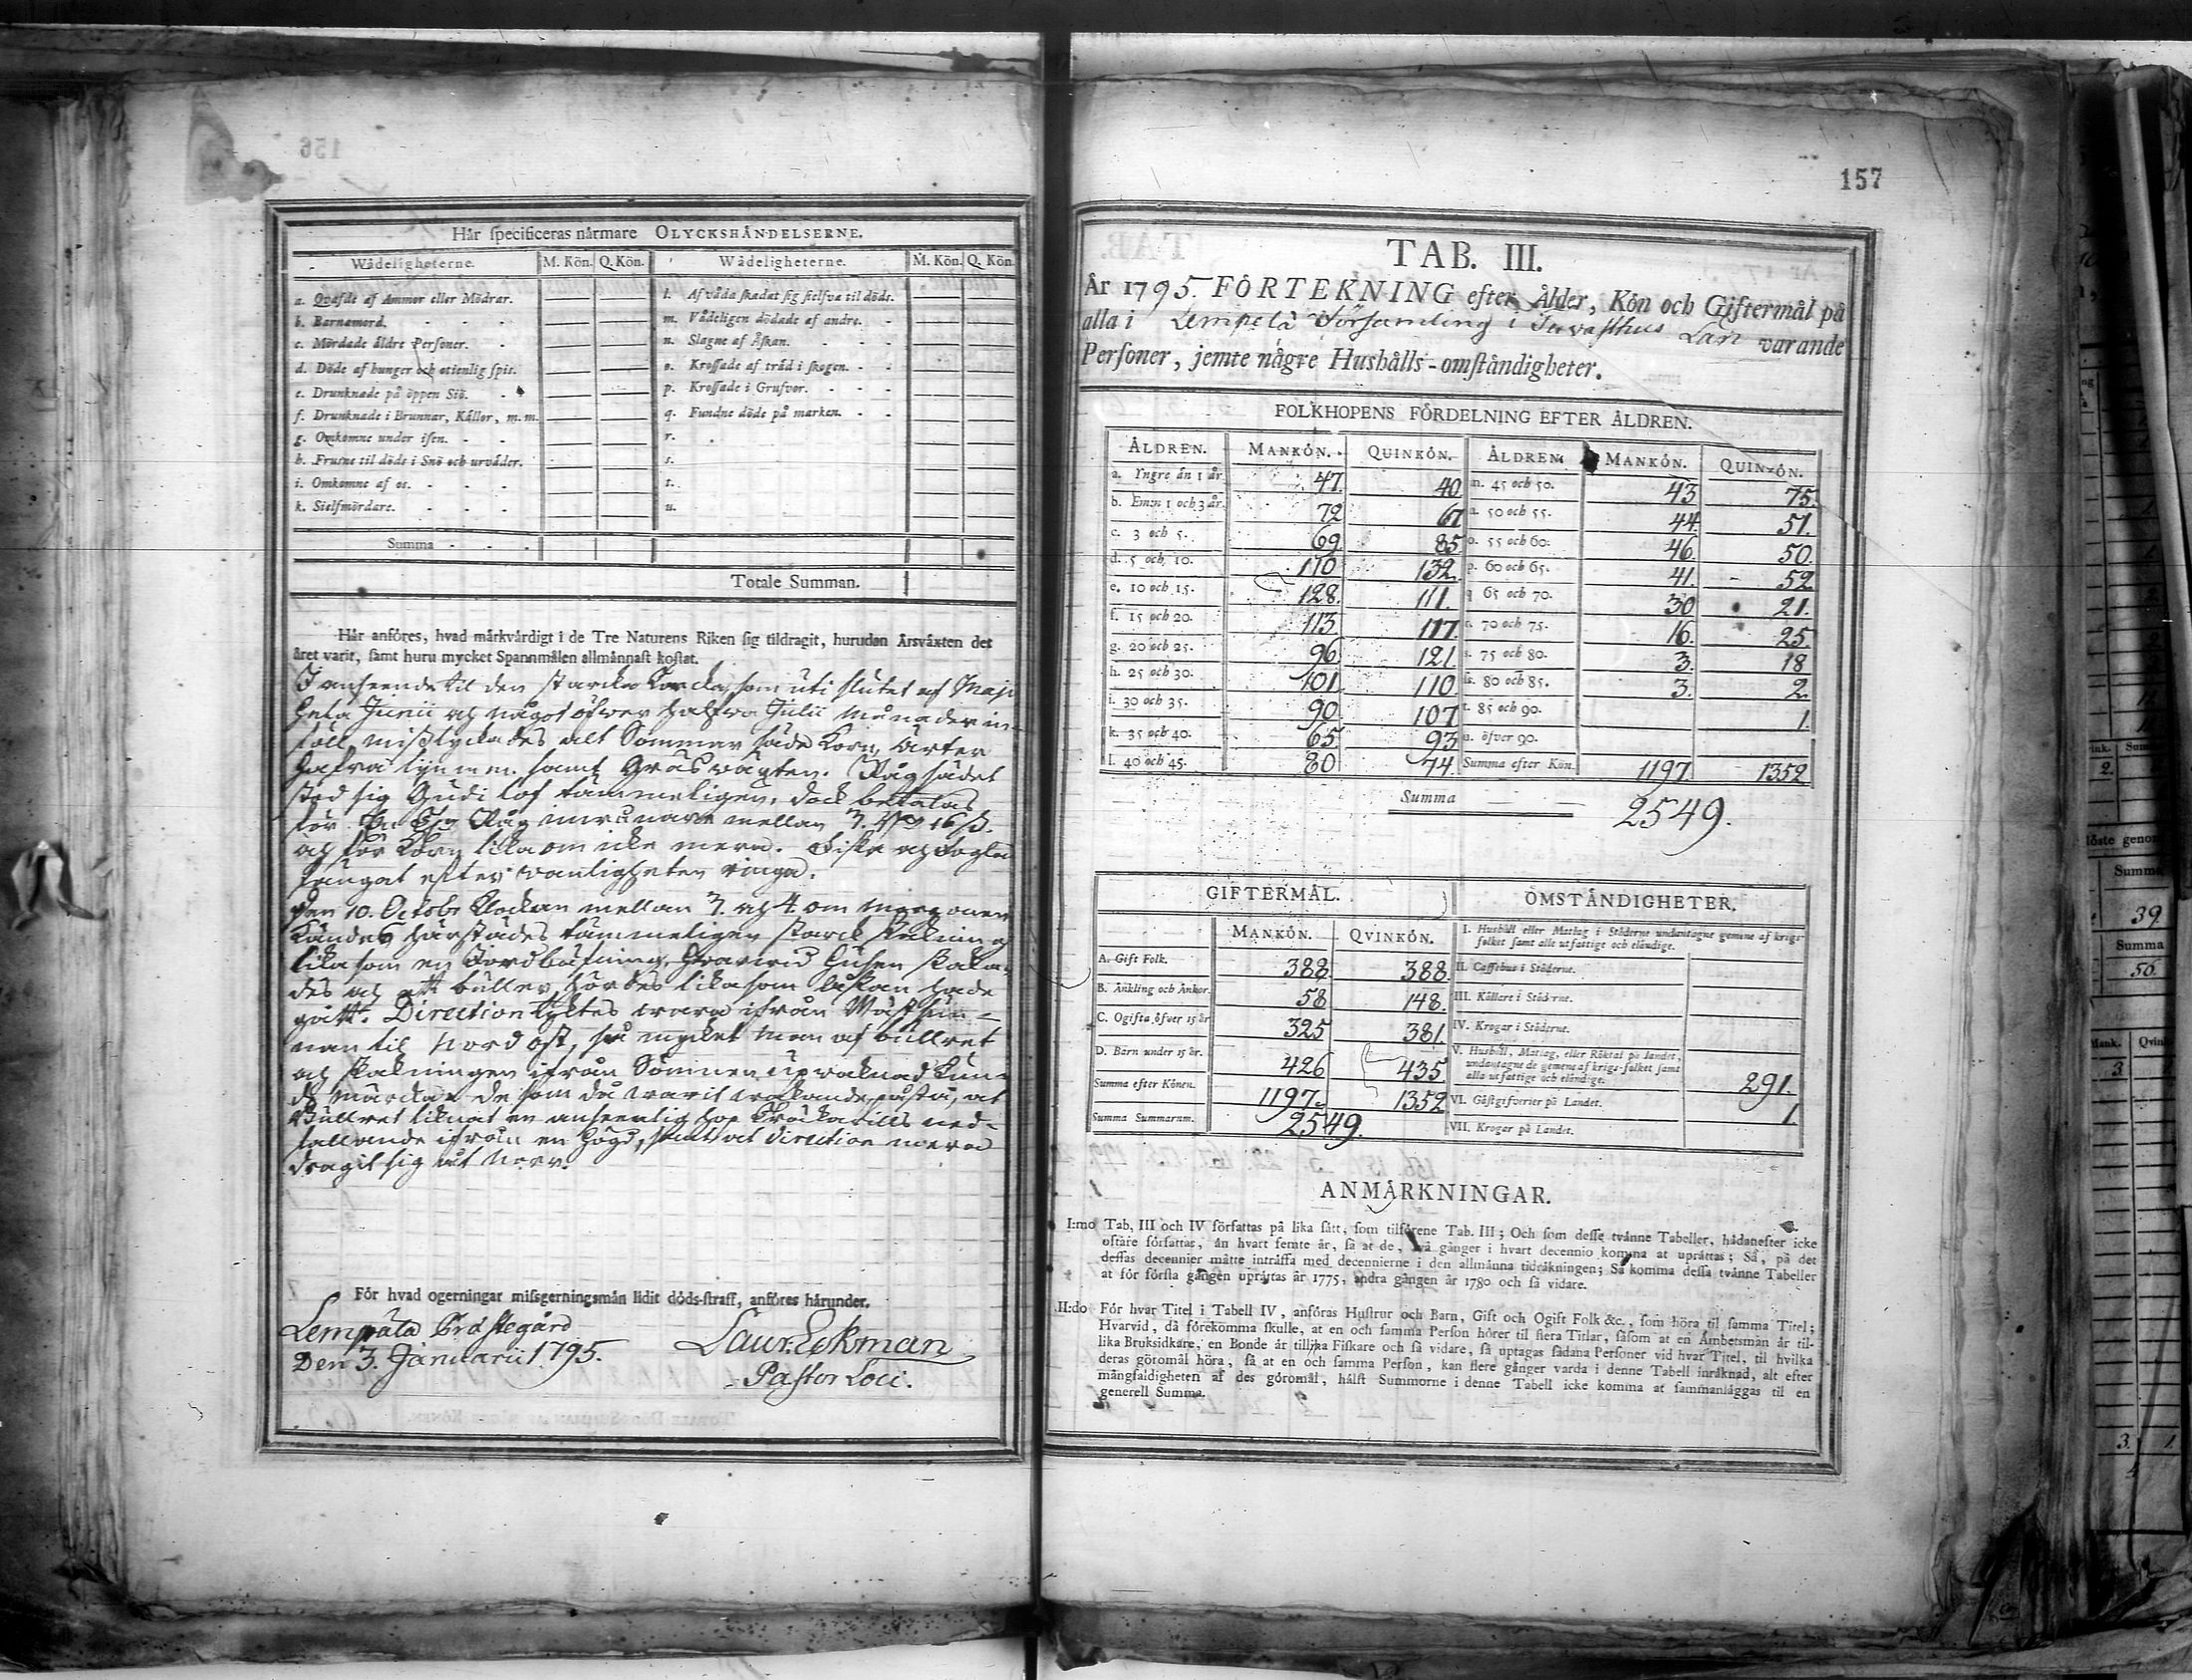 156
Här specificeras närmare OLYCKSHÄNDELSERNE.
Wådeligheterne. M. Kön. Q. Kön. Wådeligheterne. M. Kön. Q. Kön.
a. Qvafde af Ammor eller Mödrar. l. Af våda skadat sig sielfva til döds.
b. Barnamord. m. Vådeligen dödade af andre.
c. Mördade äldre Personer. n. Slagne af Åskan.
d. Döde af hunger och otienlig spis. o. Krossade af träd i skogen.
e. Drunknade på öppen Siö. p. Krossade i Grufvor.
f. Drunknade i Brunnar, Källor, m. m. q. Fundne döde på marken.
g. Omkomne under isen. r.
h. Frusne til döds i Snö och urväder. s.
i. Omkomne af os. t.
k. Sielfmördare. u.
Summa
Totale Summan.
Här anföres, hvad märkvärdigt i de Tre Naturens Riken sig tildragit, hurudan Årsväxten det
året varit, samt huru mycket Spannmålen allmännast kostat.
I anseende til den starcka torcka, som uti slutet af Maji
hela Junii och något öfwer halfwa Julii månader in-
föll, misslyckades alt Sommar säde Korn, Ärter
hafra samt Gräswäxten. Rågsädet
stod sig Gudi lof tämmeligen, dock betalas
för En Råg mellan 3. 16 ß.
och för Korn lika om icke mera. Fiske och Fogla
fånget efter wanligheten ringa.
Den 10. Octobr Klockan mellan 3. och 4. om morgonen
kändes härstädes tämmeligen starck skakning
lika som en Jordbäfning, hwarwid husen skaka-
des och ett buller hördes lika som åskan hade
gått. Direction tyktes wara ifrån Wäst sun-
nan til Nordost, så mycket man af bullret
och skakningen ifrån Sömnen upwaknad kun-
de märcka. De som då warit wakande påstå, at
Bullret liknat en anseenlig hop ned-
fallande ifrån en högd, samt at direction mera
dragit sig åt Norr.
För hvad ogerningar missgerningsmän lidit döds-straff, anföres härunder.
Lempälä Prästegård
Den 3. Januarii 1795.
Laur. Eckman
Pastor Loci.
157
TAB. III.
År 1795. FÖRTEKNING efter Ålder, Kön och Giftermål på
alla i Lempelä Församling i Tavasthus Län varande
Personer, jemte någre Hushålls-omständigheter.
FOLKHOPENS FÖRDELNING EFTER ÅLDREN.
ÅLDREN. MANKÖN. QUINKÖN. ÅLDREN. MANKÖN. QUINKÖN.
a. Yngre än 1 år 47. 40. m. 45 och 50. 43 75.
b. Emin 1 och 3 år. 72 67 n. 50 och 55. 44 51.
c. 3 och 5. 69 85 o. 55 och 60. 46. 50.
d. 5 och 10. 170 132. p. 60 och 65. 41. 52
e. 10 och 15. 128. 111. q. 65 och 70. 30 21.
f. 15 och 20. 113 117. r. 70 och 75. 16. 25.
g. 20 och 25. 96 121. s. 75 och 80. 3. 18
h. 25 och 30. 101 110. ss. 80 och 85. 3. 2.
i. 30 och 35. 90 107 t. 85 och 90. 1.
k. 35 och 40. 65. 93 u. öfver 90.
l. 40 och 45. 80 74. Summa efter Kön. 1197. 1352
Summa 2549.
GIFTERMÅL. OMSTÄNDIGHETER.
MANKÖN. QVINKÖN.
A. Gift Folk. 388 388.
B. Änkling och Änkor. 58 148.
C. Ogifta, öfver 15 år 325 381.
D. Barn under 15 år. 426 435
Summa efter Könen. 1197. 1352
Summa Summarum. 2549.
I. Hushåll eller Matlag i Städerne undantagne gemene af krigs-
folket samt alle utfattige och eländige.
II. Caffehus i Städerne.
III. Källare i Städerne.
IV. Krogar i Städerne.
V. Hushåll, Matlag, eller Röktal på landet,
undantagne de gemene af krigs-folket samt
alla utfattige och eländige. 291.
VI. Gästgifverier på Landet. 1.
VII. Krogar på Landet.
ANMÄRKNINGAR.
I:mo Tab. III och IV författas på lika sätt, som tilförene Tab. III; Och som desse tvänne Tabeller, hädanefter icke
oftare författas, än hvart femte år, så at de, två gånger i hvart decennio komma at uprättas; Så, på det
dessas decennier måtte inträffa med decennierne i den allmänna tidräkningen; Så komma dessa tvänne Tabeller
at för första gången uprättas år 1775, andra gången år 1780 och så vidare.
II:do För hvar Titel i Tabell IV, anföras Hustrur och Barn, Gift och Ogift Folk &c., som höra til samma Titel;
Hvarvid, då förekomma skulle, at en och samma Person hörer til flera Titlar, såsom at en Ämbetsman är til-
lika Bruksidkare, en Bonde är tillika Fiskare och så vidare, så uptagas sådana Personer vid hvar Titel, til hvilka
deras göromål höra, så at en och samma Person, kan flere gånger varda i denne Tabell inräknad, alt efter
mångfaldigheten af des göromål, hälst Summorne i denne Tabell icke komma at sammanläggas til en
generell Summa.
Summa
39
Summa
56.
Mank. Qvink
3. 1.